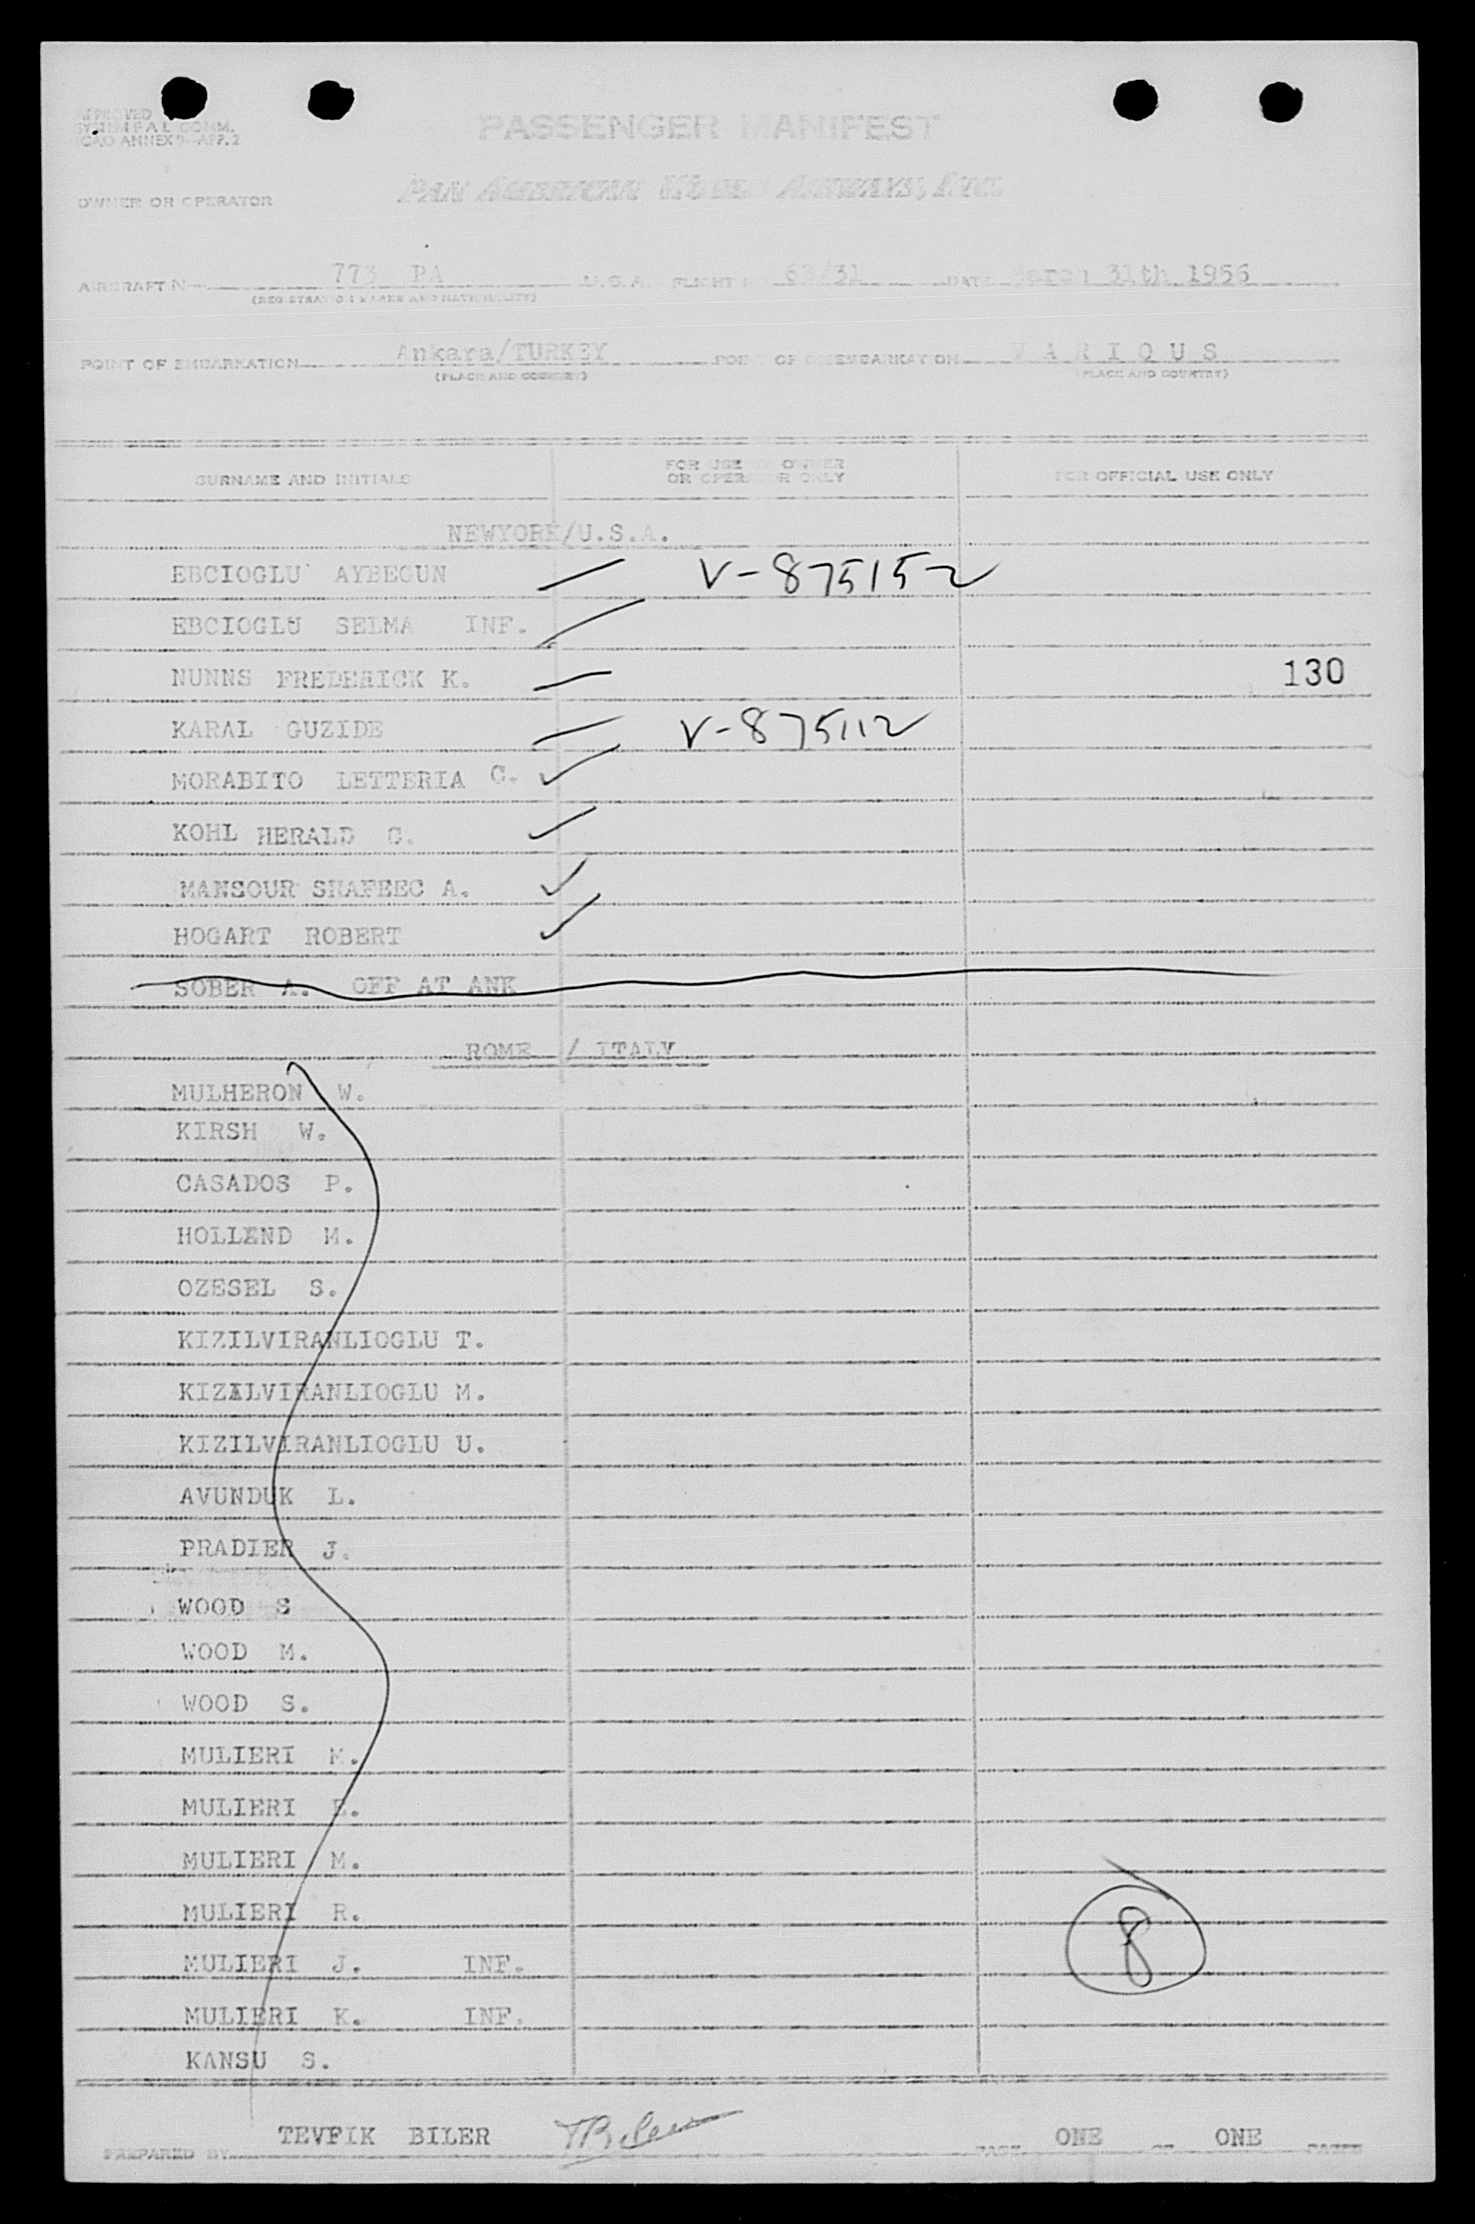 APPROVED
SYSTEM F A L COMM.
ICAO ANNEX 9—APP. 2
PASSENGER MANIFEST
OWNER OR OPERATOR PAN AMERICAN WORLD AIRWAYS, INC.
AIRCRAFT N 773 PA U.S.A. FLIGHT 63/31 DATE March 31th 1956
(REGISTRATION MARKS AND NATIONALITY)
POINT OF EMBARKATION Ankara/TURKEY POINT OF DISEMBARKATION V A R I O U S
(PLACE AND COUNTRY) (PLACE AND COUNTRY)
SURNAME AND INITIALS FOR USE OF OWNER OR OPERATOR ONLY FOR OFFICIAL USE ONLY
NEWYORK/U.S.A.
EBCIOGLU AYBEGUN V-875152
EBCIOGLU SELMA INF.
NUNNS FREDERICK K. 130
KARAL GUZIDE V-875112
MORABITO LETTERIA C.
KOHL HERALD G.
MANSOUR SHAFEEC A.
HOGART ROBERT
SOBER A. OFF AT ANK
ROME / ITALY
MULHERON W.
KIRSH W.
CASADOS P.
HOLLEND M.
OZESEL S.
KIZILVIRANLIOGLU T.
KIZILVIRANLIOGLU M.
KIZILVIRANLIOGLU U.
AVUNDUK L.
PRADIER J.
WOOD S
WOOD M.
WOOD S.
MULIERI M.
MULIERI E.
MULIERI M.
MULIERI R.
8
MULIERI J. INF.
MULIERI K. INF.
KANSU S.
PREPARED BY TEVFIK BILER TBiler PAGE ONE OF ONE PAGES